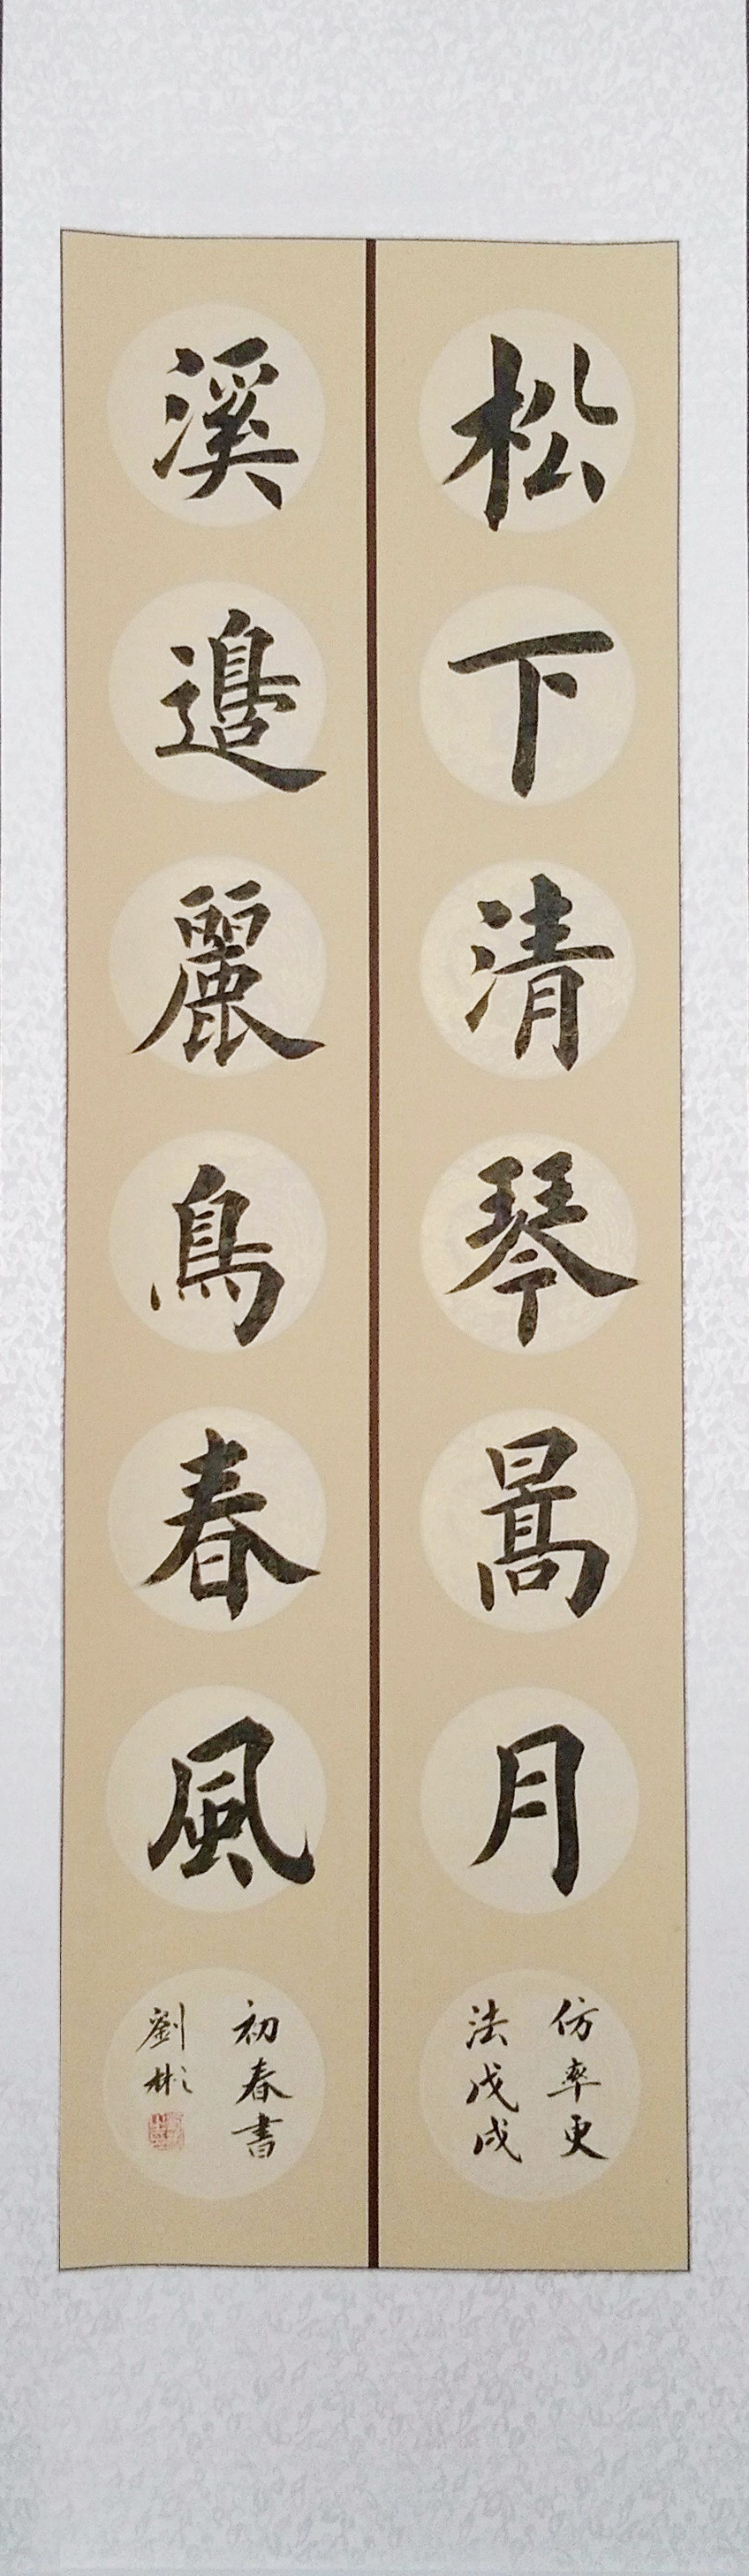 松下清琴暠月
仿率更
法戊戌
溪邊麗鳥春風
初春書
劉彬